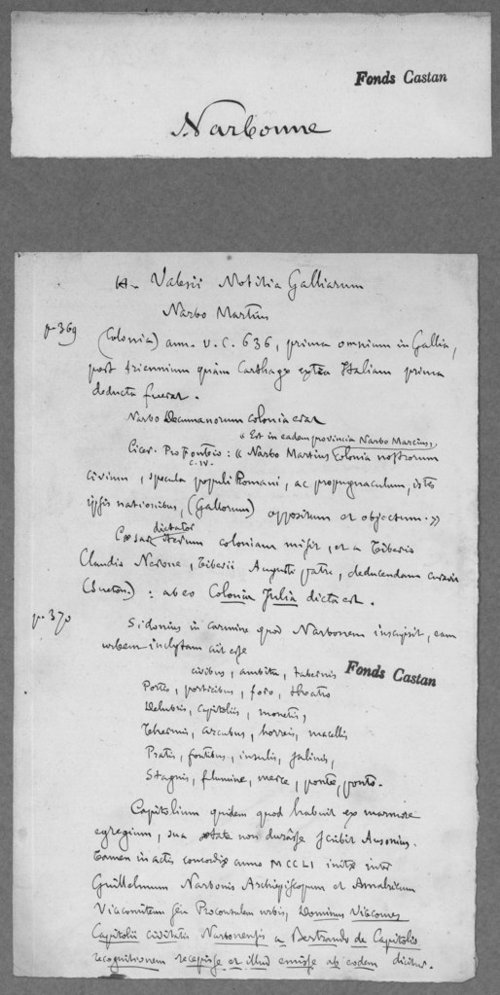 Fonds Castan
Narbonne
H. Valesii Notitia Galliarum
Narbo Martius
p. 369
(Colonia) ann. U.C. 636, prima omnium in Gallia,
post triennium quàm Carthago extra Italiam prima
deducta fuerat.
Narbo Decumanorum colonia erat
« Est in eadem provincia Narbo Marcius,
Cicer. Pro Fonteio : « Narbo Martius colonia nostrorum
c. IV.
civium, specula populi Romani, ac propugnaculum, istis
ipsis nationibus, (Gallorum) oppositum et objectum. »
dictator
Cæsar iterum coloniam misit, et a Tiberio
Claudio Nerone, Tiberii Augusti patre, deducendam curavit
(Sueton.) : ab eo Colonia Julia dicta est.
p. 370
Sidonius in carmine quod Narbonem inscripsit, eam
urbem inclytam ait esse
civibus, ambitu, tabernis
Fonds Castan
Portis, porticibus, foro, theatro
Delubris, capitoliis, monetis,
Thermis, arcubus, horreis, macellis
Pratis, fontibus, insulis, salinis,
Stagnis, flumine, merce, ponte, ponto.
Capitolium quidem quod habuit ex marmore
egregium, sua ætate non durâsse scribit Ausonius.
Tamen in actis concordiæ anno MCCLI initæ inter
Guillelmum Narbonis Archiepiscopum et Amalricum
Vicecomitem seu Proconsulem urbis, Dominus Vicecomes
Capitolii civitatis Narbonensis a Bertrando de Capitolio
recognitionem recepisse et illud emisse ab eodem dicitur.